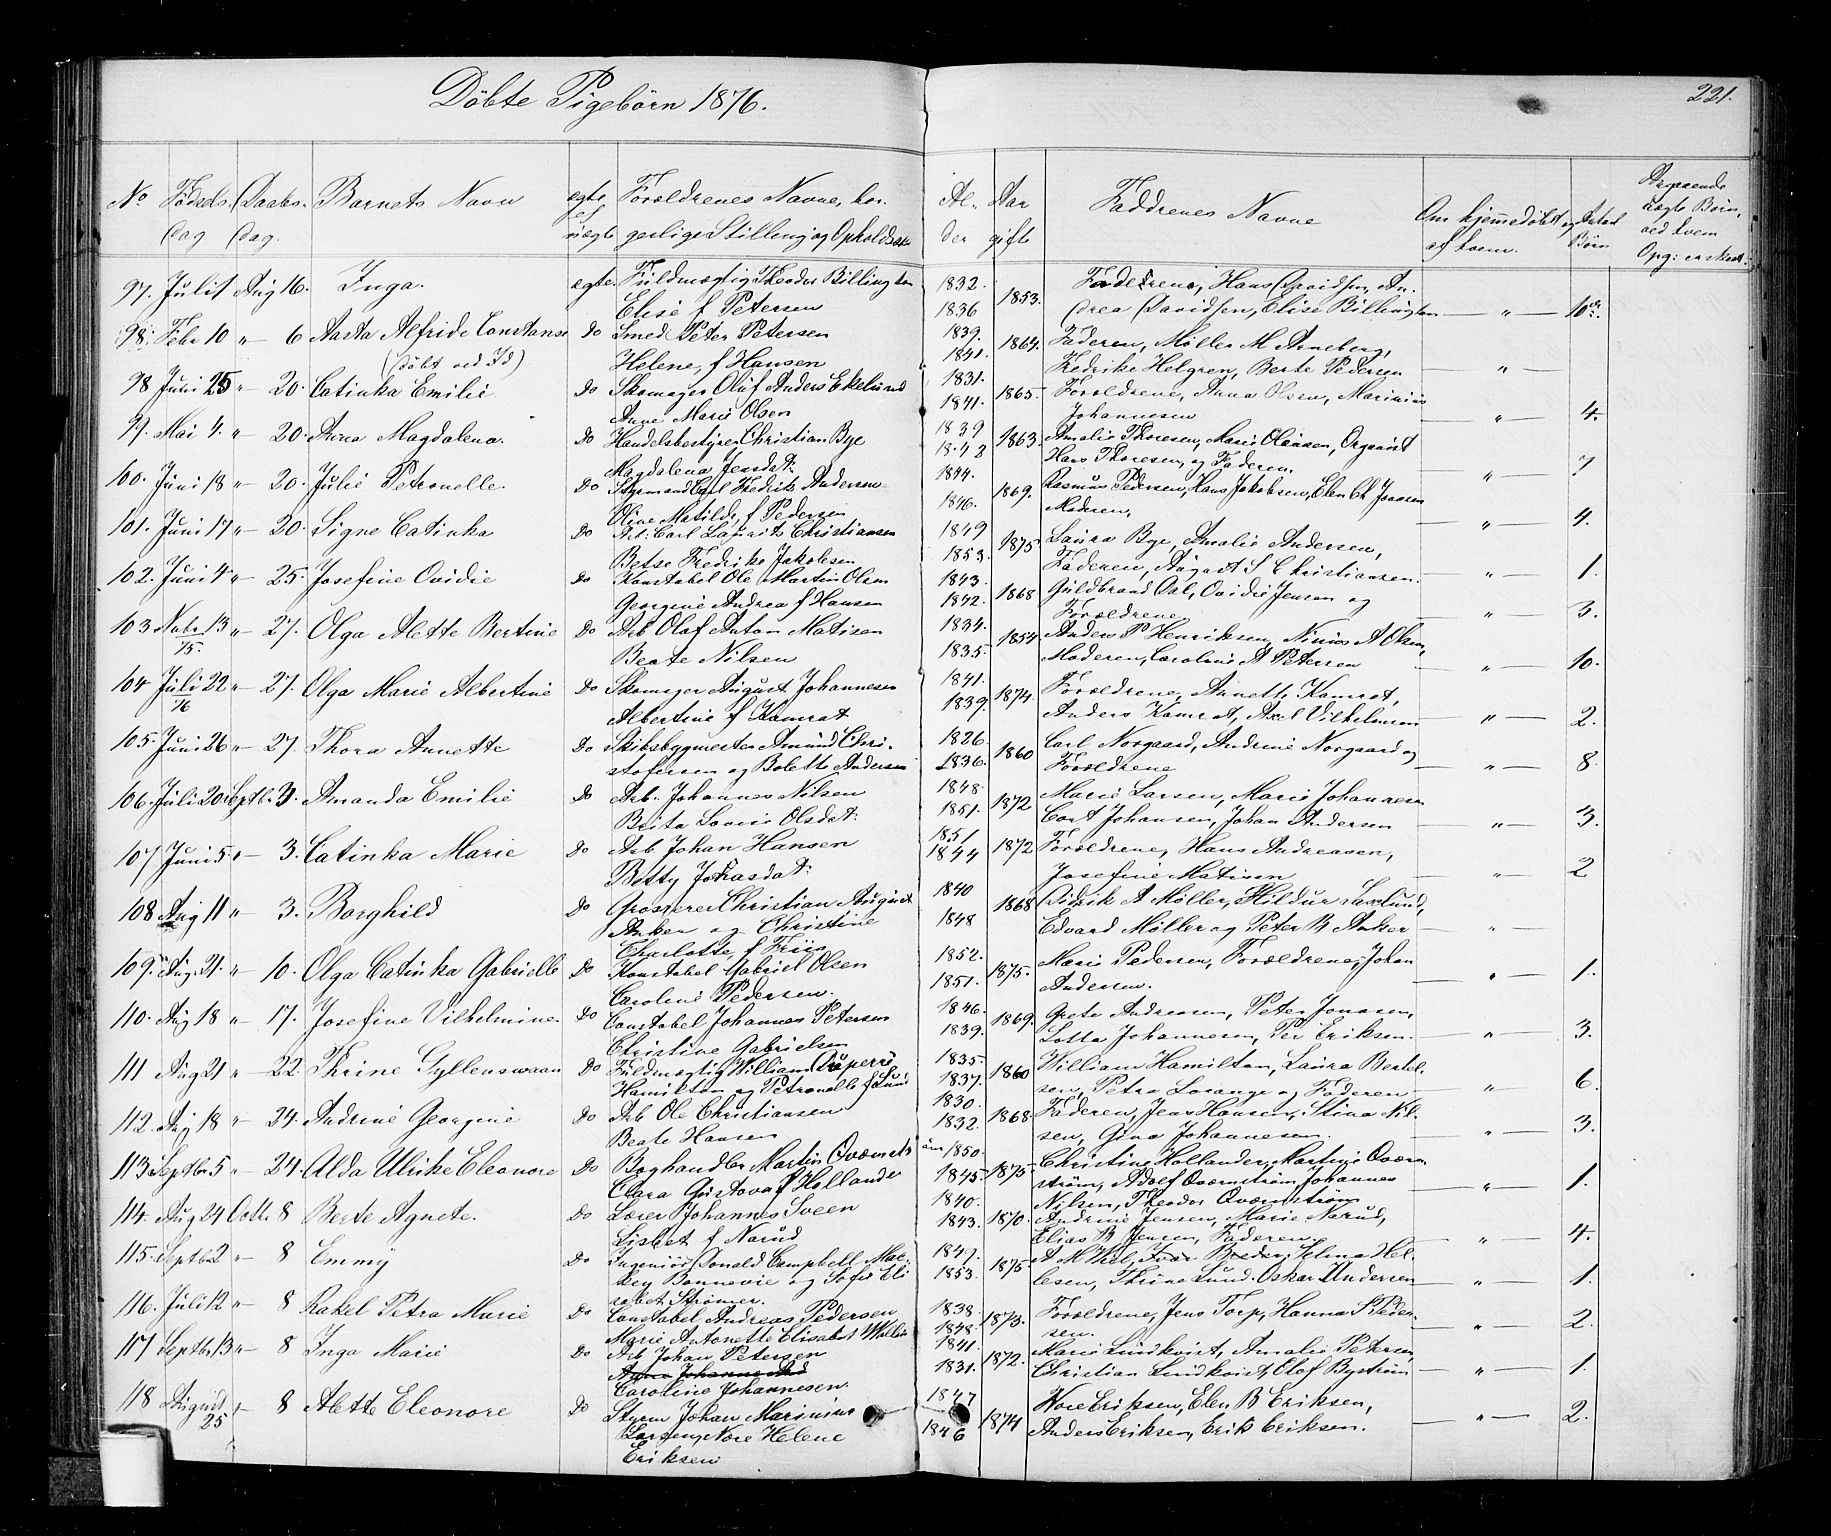 Döbte Pigebörn 1876.
221.
No Fødsels Dag Daabs. Dag. Barnets Navn ægte el uægte Forældrenes Navne, bor. gerlige Stilling og Opholdssted Al. der Aar gift Faddrenes Navne Om hjemmedöbt og af hvem. Antal Börn
Opg:
97. Juli 1 Aug 16. Inga. ægte. Fuldmægtig Theodor Billington 1832. 1853. Forældrene, Hans Davidsen, An-
Elise f Petersen 1836 drea Davidsen, Elise Billington — " — 10
98. Febr 10 " — 6 Aasta Alfride Constanse Do Smed Peter Petersen 1839. 1864. Faderen, Møller M Arneberg,
(döbt ved Id) Helene, f Hansen 1841. Fredrike Helgren, Berte Pedersen — " —
98 Juni 25 " — 20. Catinka Emilie Do Skomager Oluf Anders Ekelund 1831. 1865. Forældrene, Anna Olsen, Marinius
Anne Marie Olsen 1841. Johannesen — " — 4.
99. Mai 4. " — 20. Anna Magdalena. Do Handelsbestyrer Christian Bye 1839 1863. Amalie Thoresen, Marie Olausen, Organist
Magdalena Jensdat: 1843 Hans Thoresen, og Faderen. — " — 7
100. Juni 18 " — 20. Julie Petronelle. Do Styrmand Carl Fredrik Andersen 1844. 1869. Rasmus Pedersen, Hans Jakobsen, Elen Ch Jansen
Oline Matilde, f Pedersen 1846. Moderen, — " — 4.
101. Juni 17 " — 20. Signe Catinka Do Arb: Carl Lauritz Christiansen 1849 1875. Laura Bye, Amalie Andersen,
Betse Fredrike Jakobsen 1853. Faderen, August S Christiansen. — " — 1.
102. Juni 4 " — 25. Josefine Ovidie Do Konstabel Ole Martin Olsen 1843. 1868 Guldbrand Dal, Ovidie Jensen og
Georgine Andrea f Hansen 1842. Forældrene — " — 3.
103 Novbr. 13 " — 27. Olga Alette Bertine Do Arb Olaf Anton Matisen 1834. 1854. Anders P Henriksen, Ninius A Olsen,
75. Beate Nilsen 1835. Moderen, Caroline A Petersen — " — 10.
104 Juli 22 " — 27. Olga Marie Albertine Do Skomager August Johannesen 1841. 1874. Forældrene, Annette Kamrat,
76 Albertine f Kamrat 1839. Anders Kamrat, Axel Vilhelmsen — " — 2.
105. Juni 26 " — 27. Thora Annette Do Skibsbygmester Amund Chri- 1826. 1860 Carl Norgaard, Andrine Norgaard og
stofersen og Bolette Andersen 1836. Forældrene — " — 8.
106. Juli 20 Septbr. 3. Amanda Emilie Do Arb. Johannes Nilsen 1848. 1872. Marie Larsen, Marie Johannesen
Brita Lovise Olsdat: 1851. Carl Johansen, Johan Andersen — " — 3.
107 Juni 5 " — 3. Catinka Marie Do Arb Johan Hansen 1851. 1872 Forældrene, Hans Andreasen,
Betty Johasdat: 1844 Josefine Matisen — " — 2
108 Aug 11 " — 3. Borghild Do Grosserer Christian August 1840 1868 Didrik A Møller, Hildur Saxlund,
Anker og Christine 1848 Edvard Møller og Peter B Anker — " —
Charlotte, f Friis
109. Aug. 21. " — 10. Olga Catinka Gabrielle Do Konstabel Gabriel Olsen 1852. 1875. Marie Pedersen, Forældrene, Johan
Caroline Pedersen. 1851. Andersen. — " — 1.
110. Aug 18 " — 17. Josefine Vilhelmine Do Constabel Johannes Petersen 1846. 1869. Grete Andreasen, Peter Jonasen,
Christine Gabrielsen 1839. Lotta Johannesen, Per Eriksen. — " — 3.
111 Aug 21 " — 22. Thrine Gyllenswaan Do Fuldmægtig William Duperré 1835. 1860 William Hamilton, Laura Bertel-
Hamilton og Petronelle f Lund 1837. sen, Petra Lorange og Faderen — " — 6.
112. Aug 18 " — 24. Andrine Georgine Do Arb Ole Christiansen 1830. 1868. Faderen, Jens Hansen, Stina Nil-
Beate Hansen 1832. sen, Gina Johannesen. — " — 3.
113 Septbr. 5 " — 24. Alda Ulrike Eleonore Do Boghandler Martin Qværnst: öm 1850. 1875. Christine Hollander, Martine Qværn-
Clara Gustava f Hollander 1845. ström, Adolf Qværnström, Johannes — " — 1.
Nilsen, Theodor Qværnström
114. Aug 24 Octb. 8 Berte Agnete. Do Lærer Johannes Sveen 1840. 1870. Andrine Jensen, Marie Narud,
Lisbet f Narud 1843. Elias B Jensen, Faderen. — " — 4.
115. Septbr 2 " — 8 Emmy Do Ingeniør Donald Campbell Mac- 1847. 1875 A M Thiel, Ivar Breder, Helma Hel-
key Bonnevie og Sofie Eli- 1853. lesen, Thrine Lund. Oskar Andersen — " — 1.
sabet Strømer.
116. Juli 12 " — 8 Rakel Petra Marie Do Constabel Andreas Pedersen 1838. 1873. Forældrene, Jens Torp, Hanna S Peder-
Marie Antonette Elisabet Wallin 1848. sen. — " — 2.
117 Septbr. 13 " — 8 Inga Marie Do Arb Johan Petersen 1841. 1872. Marie Lundkvist, Amalie Petersen,
Caroline Johannesen. 1831. Christian Lundkvist, Olof Byström — " — 1.
118 August 25 " — 8 Alette Eleonore Do Styrm Johan Marinius 1847 1874 Hove Eriksen, Elen B Eriksen,
Larsen, Nære Helene 1846 Anders Eriksen, Erik Eriksen. — " — 2.
Eriksen